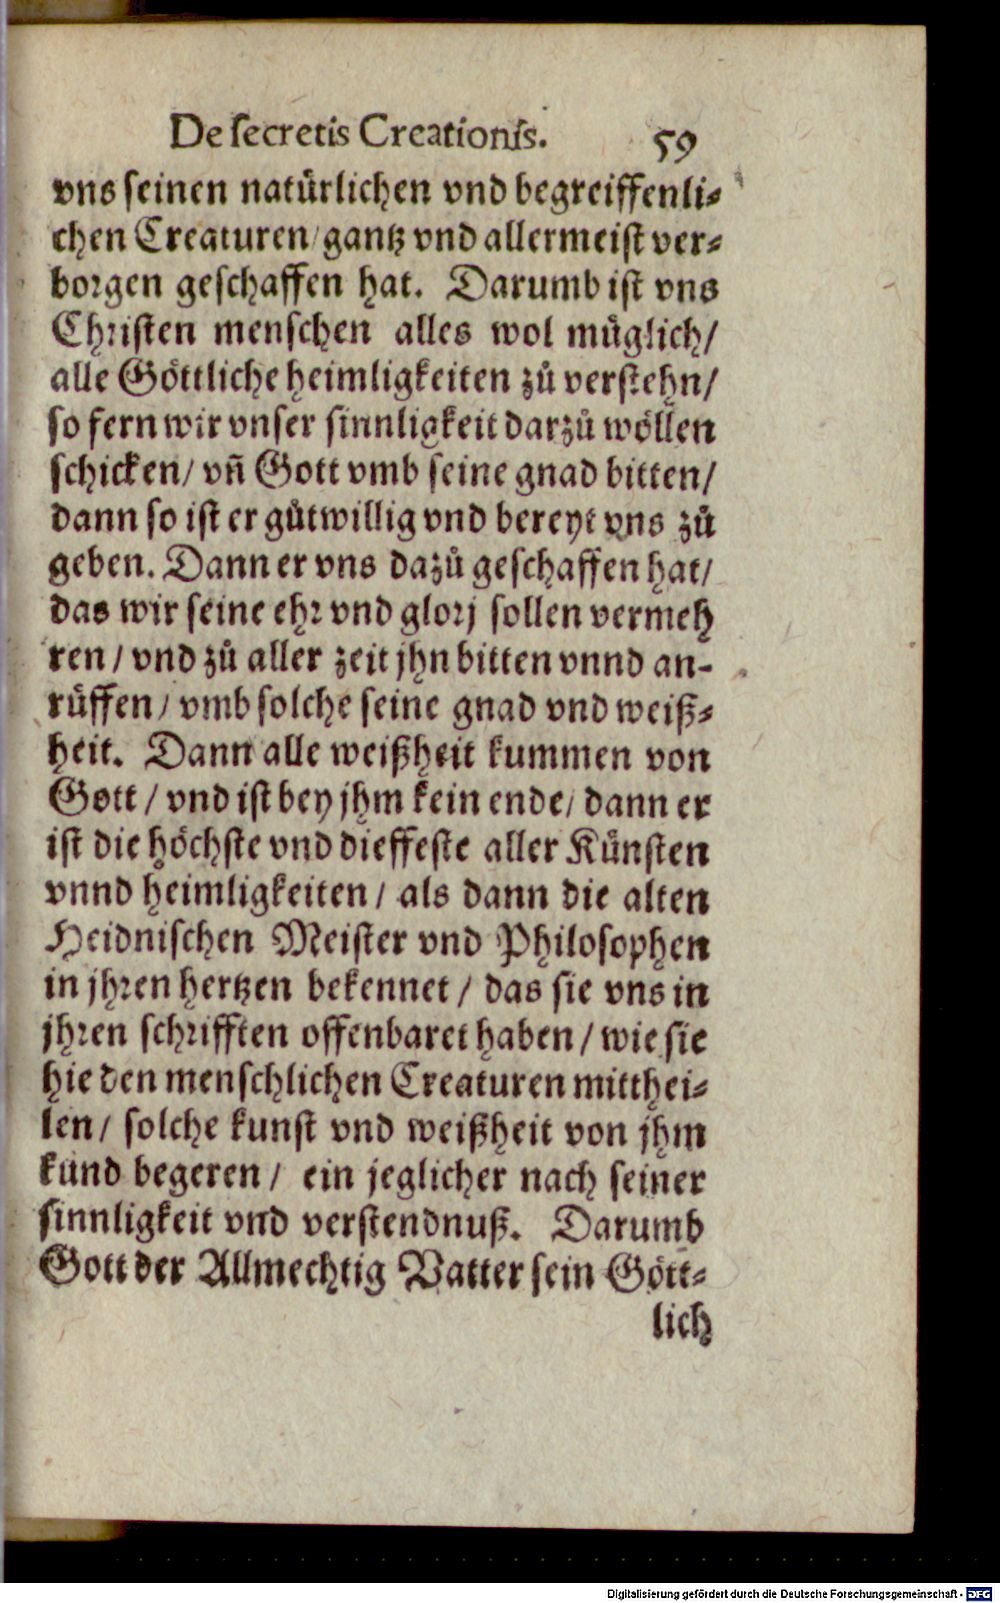 De secretis Creationis. 59
vns seinen natürlichen vnd begreiffenli⸗
chen Creaturen/gantz vnd allermeist ver⸗
borgen geschaffen hat. Darumb ist vns
Christen menschen alles wol müglich/
alle Göttliche heimligkeiten zů verstehn/
so fern wir vnser sinnligkeit darzů wöllen
schicken/ vñ Gott vmb seine gnad bitten/
dann so ist er gůtwillig vnd bereyt vns zů
geben. Dann er vns dazů geschaffen hat/
das wir seine ehr vnd glorj sollen vermeh
ren / vnd zů aller zeit jhn bitten vnnd an-
růffen / vmb solche seine gnad vnd weiß⸗
heit. Dann alle weißheit kummen von
Gott / vnd ist bey jhm kein ende/ dann er
ist die höchste vnd dieffeste aller Künsten
vnnd heimligkeiten / als dann die alten
Heidnischen Meister vnd Philosophen
in jhren hertzen bekennet / das sie vns in
jhren schrifften offenbaret haben / wie sie
hie den menschlichen Creaturen mitthei⸗
len / solche kunst vnd weißheit von jhm
kund begeren / ein jeglicher nach seiner
sinnligkeit vnd verstendnuß. Darumb
Gott der Allmechtig Vatter sein Gött⸗
lich
Digitalisierung gefördert durch die Deutsche Forschungsgemeinschaft - DFG